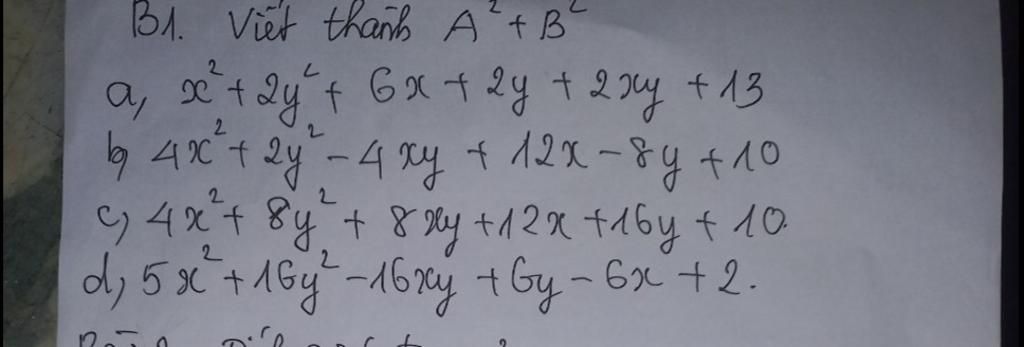 B1. Viết thành A² + B²
a, x² + 2y² + 6x + 2y + 2xy + 13
b, 4x² + 2y² - 4xy + 12x - 8y + 10
c, 4x² + 8y² + 8xy + 12x + 16y + 10.
d, 5x² + 16y² - 16xy + 6y - 6x + 2.